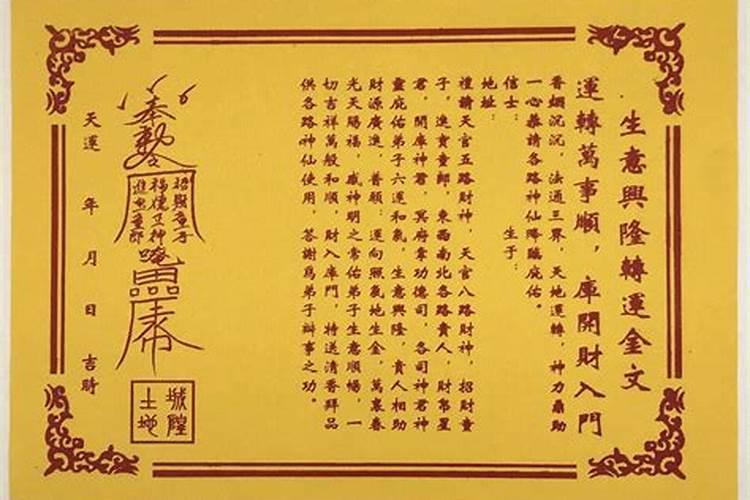 生意興隆轉運金文
運轉萬事順，庫開財入門
香烟沉沉，法通三界，天地運轉，神力鼎助
一心恭請各路神仙降臨庇佑。
信士：　　生于：
地址：
禮請天官五路財神，天官八路財神，招財童
子，進寶童郎，東西南北各路貴人，財帛星
君，開庫神君，冥府掌功德司，各司神君神
靈庇佑弟子六運和氣，生意興隆，貴人相助
財源廣進，普願：運向照氣地生金，萬裏春
光天賜福，感神明之常佑弟子生意順暢，一
切吉祥萬般和順，財入庫門，特送清香拜品
供各路神仙使用，答謝爲弟子辦事之功。
奉勅令
招財童子
福德正神
進寶童郎
城隍
土地
天運　年　月　日　吉時